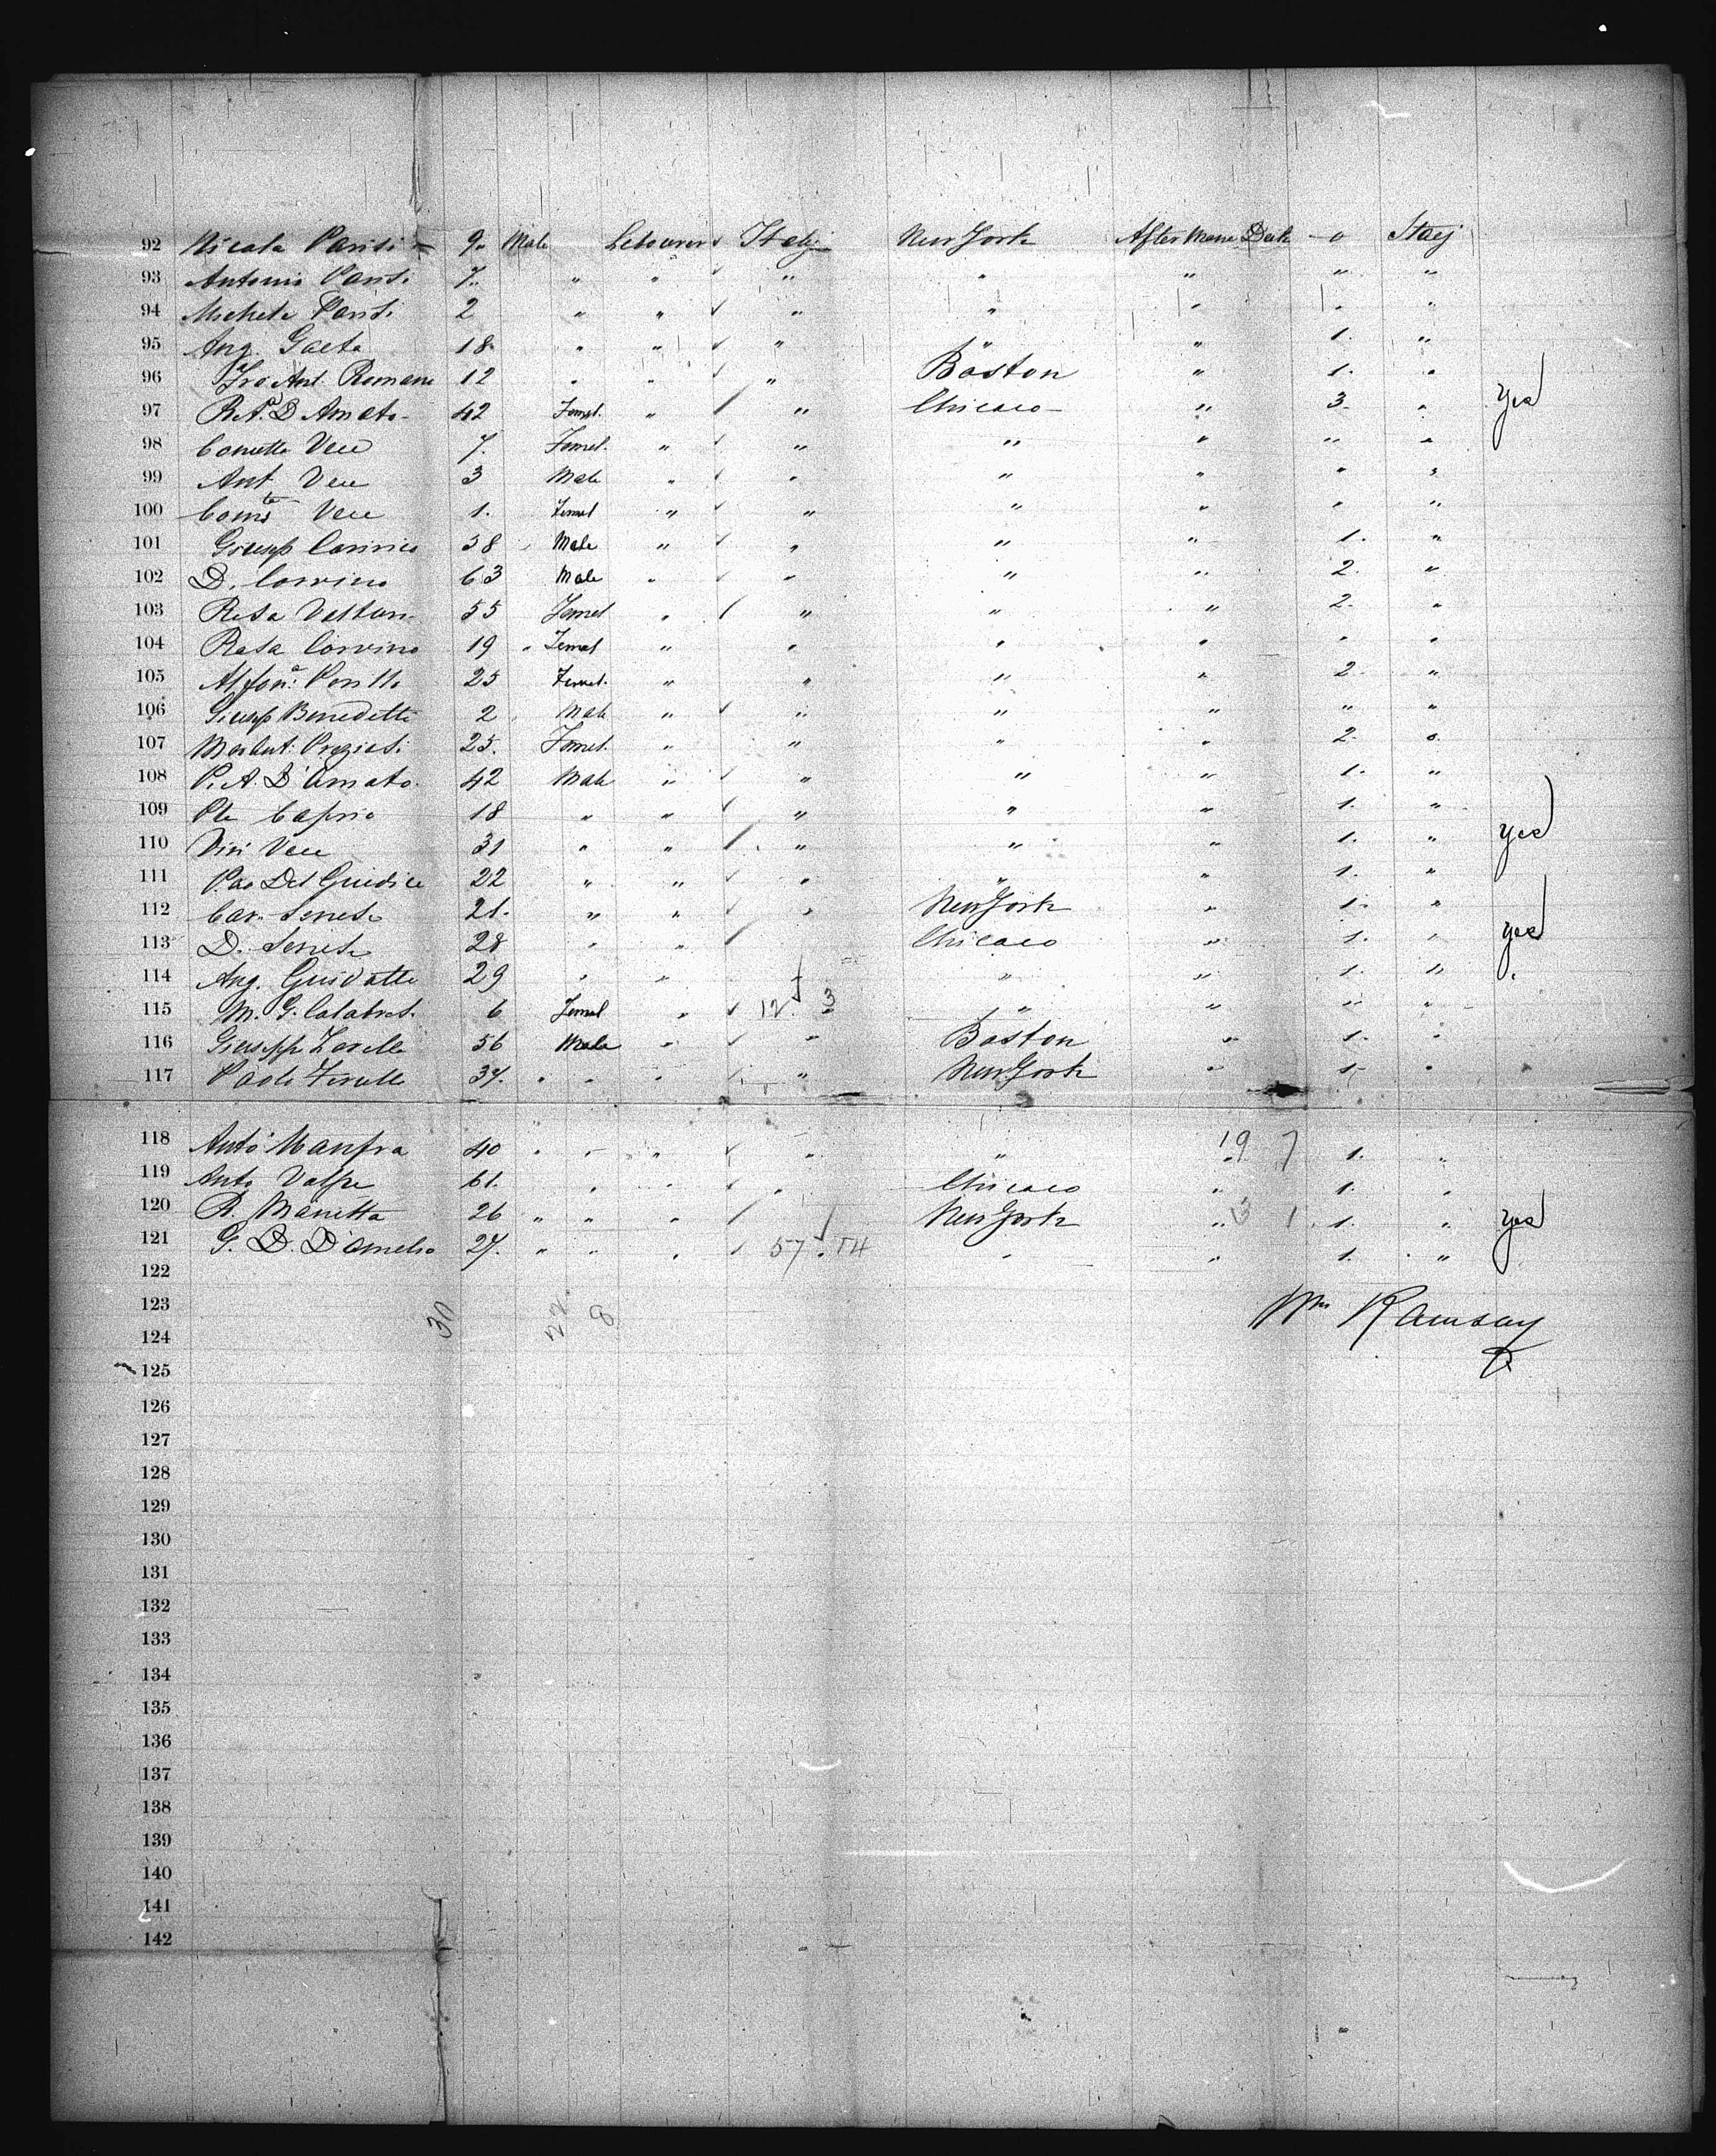 92 Nicola Parisi 9 Male Labourers Italy New York After Main Deck 0 Stag
93 Antonio Parisi 7 " " " " " " "
94 Michele Parisi 2 " " " " " " "
95 Ang. Gaeta 18 " " " " " 1. "
96 Fra Ant. Romano 12 " " " Boston " 1. "
97 R.A. D'Amato 42 Femal. " " Chicaco " 3 " yes
98 Vece 7. Femal. " " " " " "
99 Ant Vece 3 Male " " " " " "
100 Vece 1. Femal " " " " " "
101 Giusep Corvino 38 Male " " " " 1. "
102 D. Corvino 63 Male " " " " 2. "
103 Rosa 55 Femal " " " " 2. "
104 Rosa Corvino 19 Femal " " " " " "
105 Alfon.a 25 Femal. " " " " 2 "
106 Giusep Benedetti 2 Male " " " " " "
107 25. Femal. " " " " 2. "
108 P. A. D'Amato. 42 Male " " " " 1. "
109 Caprio 18 " " " " " 1. "
110 Vece 31 " " " " " 1. " yes
111 Del Guidice 22 " " " " " 1. "
112 Car. Senese 21. " " " New York " 1. "
113 D. Senese 28 " " Chicaco " 1. " yes
114 Ang. Guidotti 29 " " " " 1. "
115 M. G. Calabres. 6 Femal " 12 3 " " " "
116 Giuseppe Zarella 56 Male " " Boston " 1. "
117 Paolo 37. " " " " New York " 1 "
118 Anto Manfra 40 " " " " " 19 7 1. "
119 Anto Volpe 61. " " " Chicaco " 1. "
120 R. Manetta 26 " " " New York " 3 1 1. " yes
121 G. D. D'Amelio 27. " " " 57 14 " " 1. "
122
123 30 22 8 Wm Ramsay
124
125
126
127
128
129
130
131
132
133
134
135
136
137
138
139
140
141
142